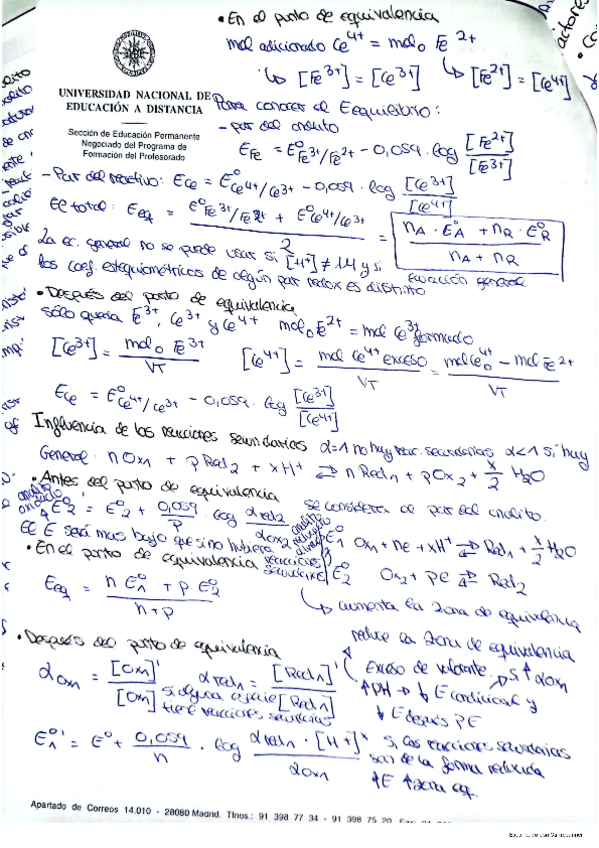 • En el punto de equivalencia
mol adicionado Ce⁴⁺ = mol₀ Fe²⁺
↳ [Fe³⁺] = [Ce³⁺] ↳ [Fe²⁺] = [Ce⁴⁺]
UNIVERSIDAD NACIONAL DE
EDUCACIÓN A DISTANCIA
Sección de Educación Permanente
Negociado del Programa de
Formación del Profesorado
Para conocer el Eequilibrio:
- par del analito
E_Fe = E⁰_Fe³⁺/Fe²⁺ - 0,059 · log [Fe²⁺]/[Fe³⁺]
- Par del reactivo: E_Ce = E⁰_Ce⁴⁺/Ce³⁺ - 0,059 · log [Ce³⁺]/[Ce⁴⁺]
El total: E_eq = (E⁰_Fe³⁺/Fe²⁺ + E⁰_Ce⁴⁺/Ce³⁺)/2 = (n_A · E⁰_A + n_R · E⁰_R)/(n_A + n_R)
ecuación general
La ec. general no se puede usar si [H⁺] ≠ 1M y si
los coef. estequiométricos de algún par redox es distinto
• Después del punto de equivalencia
sólo queda Fe³⁺, Ce³⁺ y Ce⁴⁺ mol₀ Fe²⁺ = mol Ce³⁺ formado
[Ce³⁺] = mol₀ Fe³⁺/VT [Ce⁴⁺] = mol Ce⁴⁺ exceso/VT = (mol Ce₀⁴⁺ - mol Fe²⁺)/VT
E_Ce = E⁰_Ce⁴⁺/Ce³⁺ - 0,059 · log [Ce³⁺]/[Ce⁴⁺]
Influencia de las reacciones secundarias α=1 no hay reac. secundarias α<1 sí hay
General: n Ox₁ + p Red₂ + xH⁺ ⇌ n Red₁ + p Ox₂ + x/2 H₂O
• Antes del punto de equivalencia
se considera el par del analito.
E⁰₂' = E⁰₂ + 0,059/p · log α red₂/α ox₂
E⁰₁ Ox₁ + ne + xH⁺ ⇌ Red₁ + x/2 H₂O
El E será más bajo que si no hubiera reacciones secundarias
E⁰₂ Ox₂ + pe ⇌ Red₂
↳ aumenta la zona de equivalencia
• En el punto de equivalencia
E_eq = (n E⁰₁ + p E⁰₂)/(n + p)
• Después del punto de equivalencia
reduce la zona de equivalencia
Exceso de valorante
α ox₁ = [Ox₁]'/[Ox₁] α red₁ = [Red₁]'/[Red₁]
si alguna especie
tiene reacciones secundarias
↑PH → ↓ E condicional y
↓ E después PE
E₁⁰' = E⁰ + 0,059/n · log α red₁ · [H⁺]/α ox₁
si las reacciones secundarias
son de la forma reducida
↑E ↑ zona eq.
Apartado de Correos 14.010 - 28080 Madrid. Tlnos.: 91 398 77 34 - 91 398 75 20